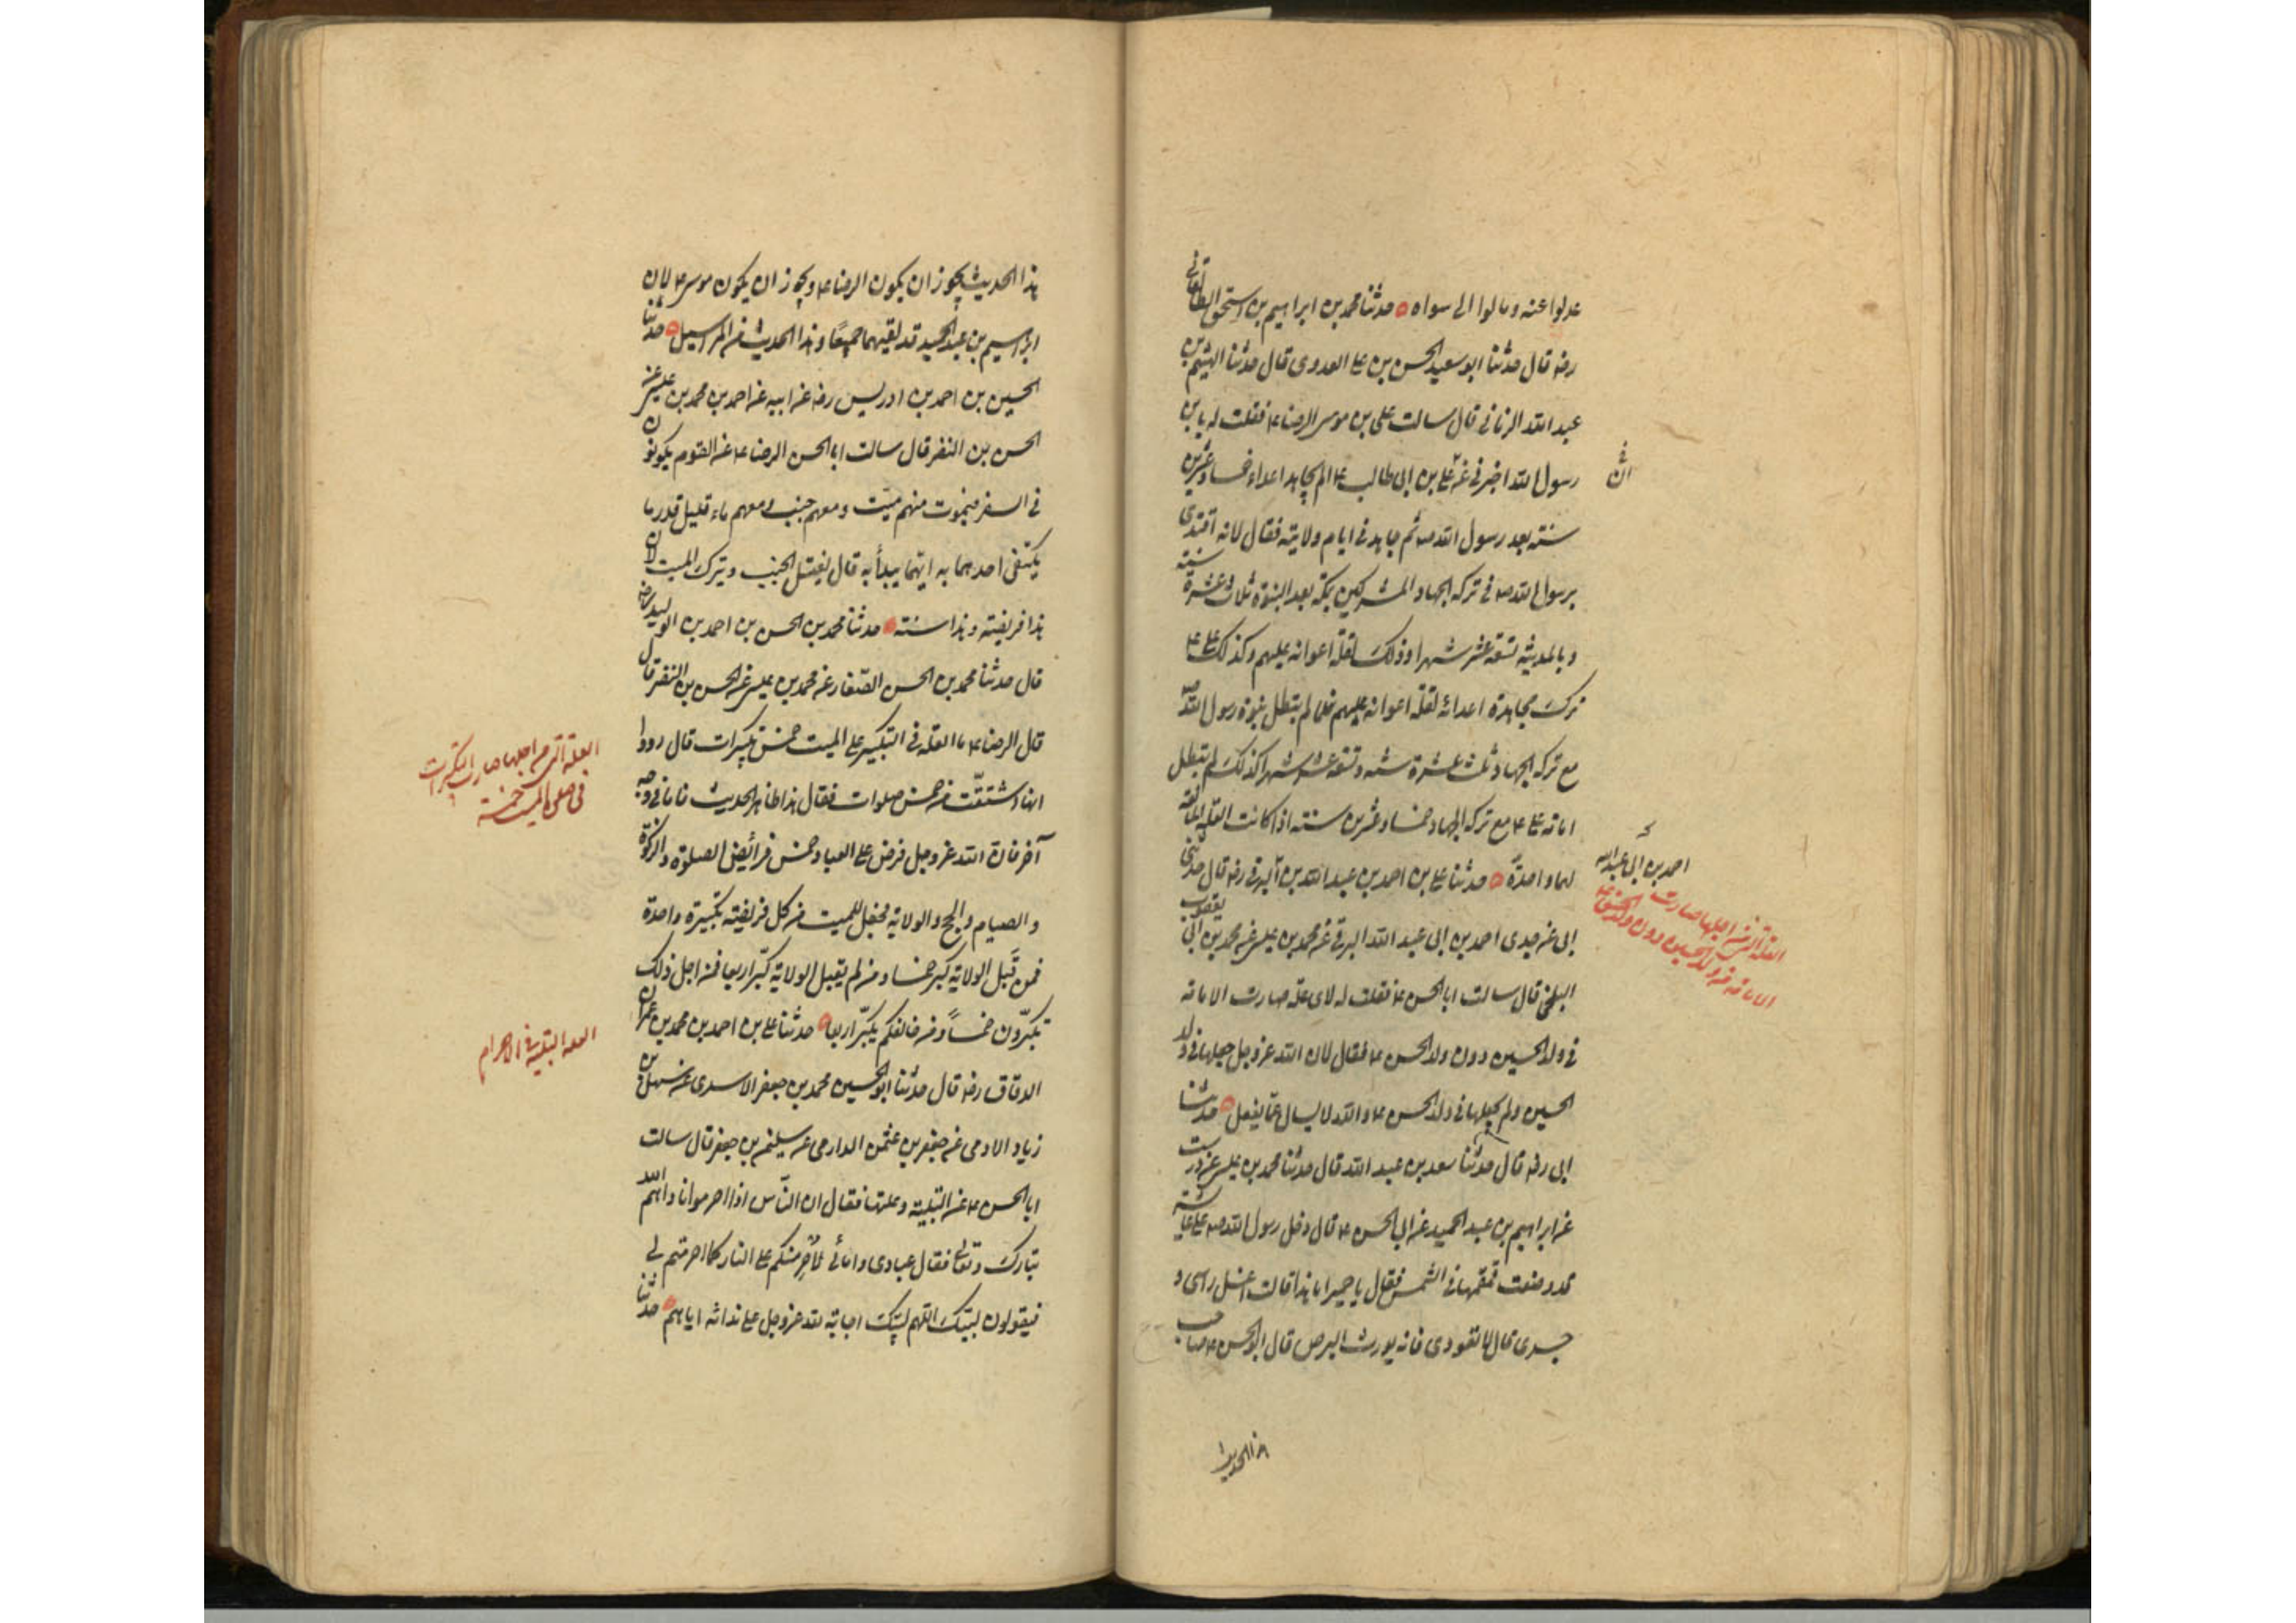 عدلوا عنه و مالوا الى سواه حدثنا محمد بن ابراهيم بن اسحق الطالقانى
رضه قال حدثنا ابو سعيد الحسن بن على العدوى قال حدثنا الهيثم بن
عبد الله الرمانى قال سالت على بن موسى الرضا ع فقلت له يا بن
رسول الله اخبرنى عن على بن ابى طالب ع لم يجاهد اعداءه خمسا وعشرين
سنة بعد رسول الله ص ثم جاهد فى ايام ولايته فقال لانه اقتدى
برسول الله ص فى تركه الجهاد المشركين بمكة بعد النبوة ثلاث عشرة سنة
و بالمدينة تسعة عشر شهرا وذلك لقلة اعوانه عليهم وكذلك على ع
ترك مجاهدة اعدائه لقلة اعوانه عليهم فلما لم تبطل نبوة رسول الله ص
مع تركه الجهاد ثلث عشرة سنة وتسعة عشر شهرا كذلك لم تبطل
امامة على ع مع تركه الجهاد خمسا وعشرين سنة اذا كانت العلة المانعة
لهما واحدة حدثنا على بن احمد بن عبد الله بن البرقى رضه قال حدثنى
ابى عن جدى احمد بن ابى عبد الله البرقى عن محمد بن عيسى عن محمد بن ابى يعقوب
البلخى قال سالت ابا الحسن ع فقلت له لاى علة صارت الامامة
فى ولد الحسين دون ولد الحسن ع فقال لان الله عز وجل جعلها فى ولد
الحسين ولم يجعلها فى ولد الحسن ع والله لا يسال عما يفعل حدثنا
ابى رضه قال حدثنا سعد بن عبد الله قال حدثنا محمد بن عيسى عن درست
عن ابراهيم بن عبد الحميد عن ابى الحسن ع قال دخل رسول الله ص على عايشة
قد وضعت قمقمها فى الشمس فقال يا حميرا ما هذا قالت اغسل راسى و
جسدى قال لا تعودى فانه يورث البرص قال ابو الحسن ع صاحب
هذا الحديث
احمد بن ابى عبد الله
العلة التى من اجلها صارت
الامامة فى ولد الحسين دون ولد الحسن ع
هذا الحديث يجوز ان يكون الرضا ع ويجوز ان يكون موسى ع لان
ابراهيم بن عبد الحميد قد لقيهما جميعا وهذا الحديث من المراسيل حدثنا
الحسين بن احمد بن ادريس رضه عن ابيه عن احمد بن محمد بن عيسى عن
الحسن بن النضر قال سالت ابا الحسن الرضا ع عن القوم يكونون
فى السفر فيموت منهم ميت ومعهم جنب ومعهم ماء قليل قدر ما
يكتفى احدهما به ايهما يبدأ به قال يغتسل الجنب ويترك الميت لان
هذا فريضة وهذا سنة حدثنا محمد بن الحسن بن احمد بن الوليد رضه
قال حدثنا محمد بن الحسن الصفار عن محمد بن عيسى عن الحسن بن النضر قال
قال الرضا ع ما العلة فى التكبير على الميت خمس تكبيرات قال رووا
انها اشتقت من خمس صلوات فقال هذا ظاهر الحديث فاما فى وجه
آخر فان الله عز وجل فرض على العباد خمس فرائض الصلوة والزكوة
والصيام والحج والولاية فجعل للميت من كل فريضة تكبيرة واحدة
فمن قبل الولاية كبر خمسا ومن لم يقبل الولاية كبر اربعا فمن اجل ذلك
تكبرون خمسا ومن خالفكم يكبر اربعا حدثنا على بن احمد بن محمد بن عمران
الدقاق رضه قال حدثنا ابو الحسين محمد بن جعفر الاسدى عن سهل بن
زياد الادمى عن جعفر بن عثمن الدارمى عن سليمن بن جعفر قال سالت
ابا الحسن ع عن التلبية وعلتها فقال ان الناس اذا احرموا ناداهم الله
تبارك وتعالى فقال عبادى وامائى لاحرمنكم على النار كما احرمتم لى
فيقولون لبيك اللهم لبيك اجابة لله عز وجل على ندائه اياهم حدثنا
العلة التى من اجلها صارت التكبيرات
فى صلى الميت خمسة
العلة التلبية فى الاحرام